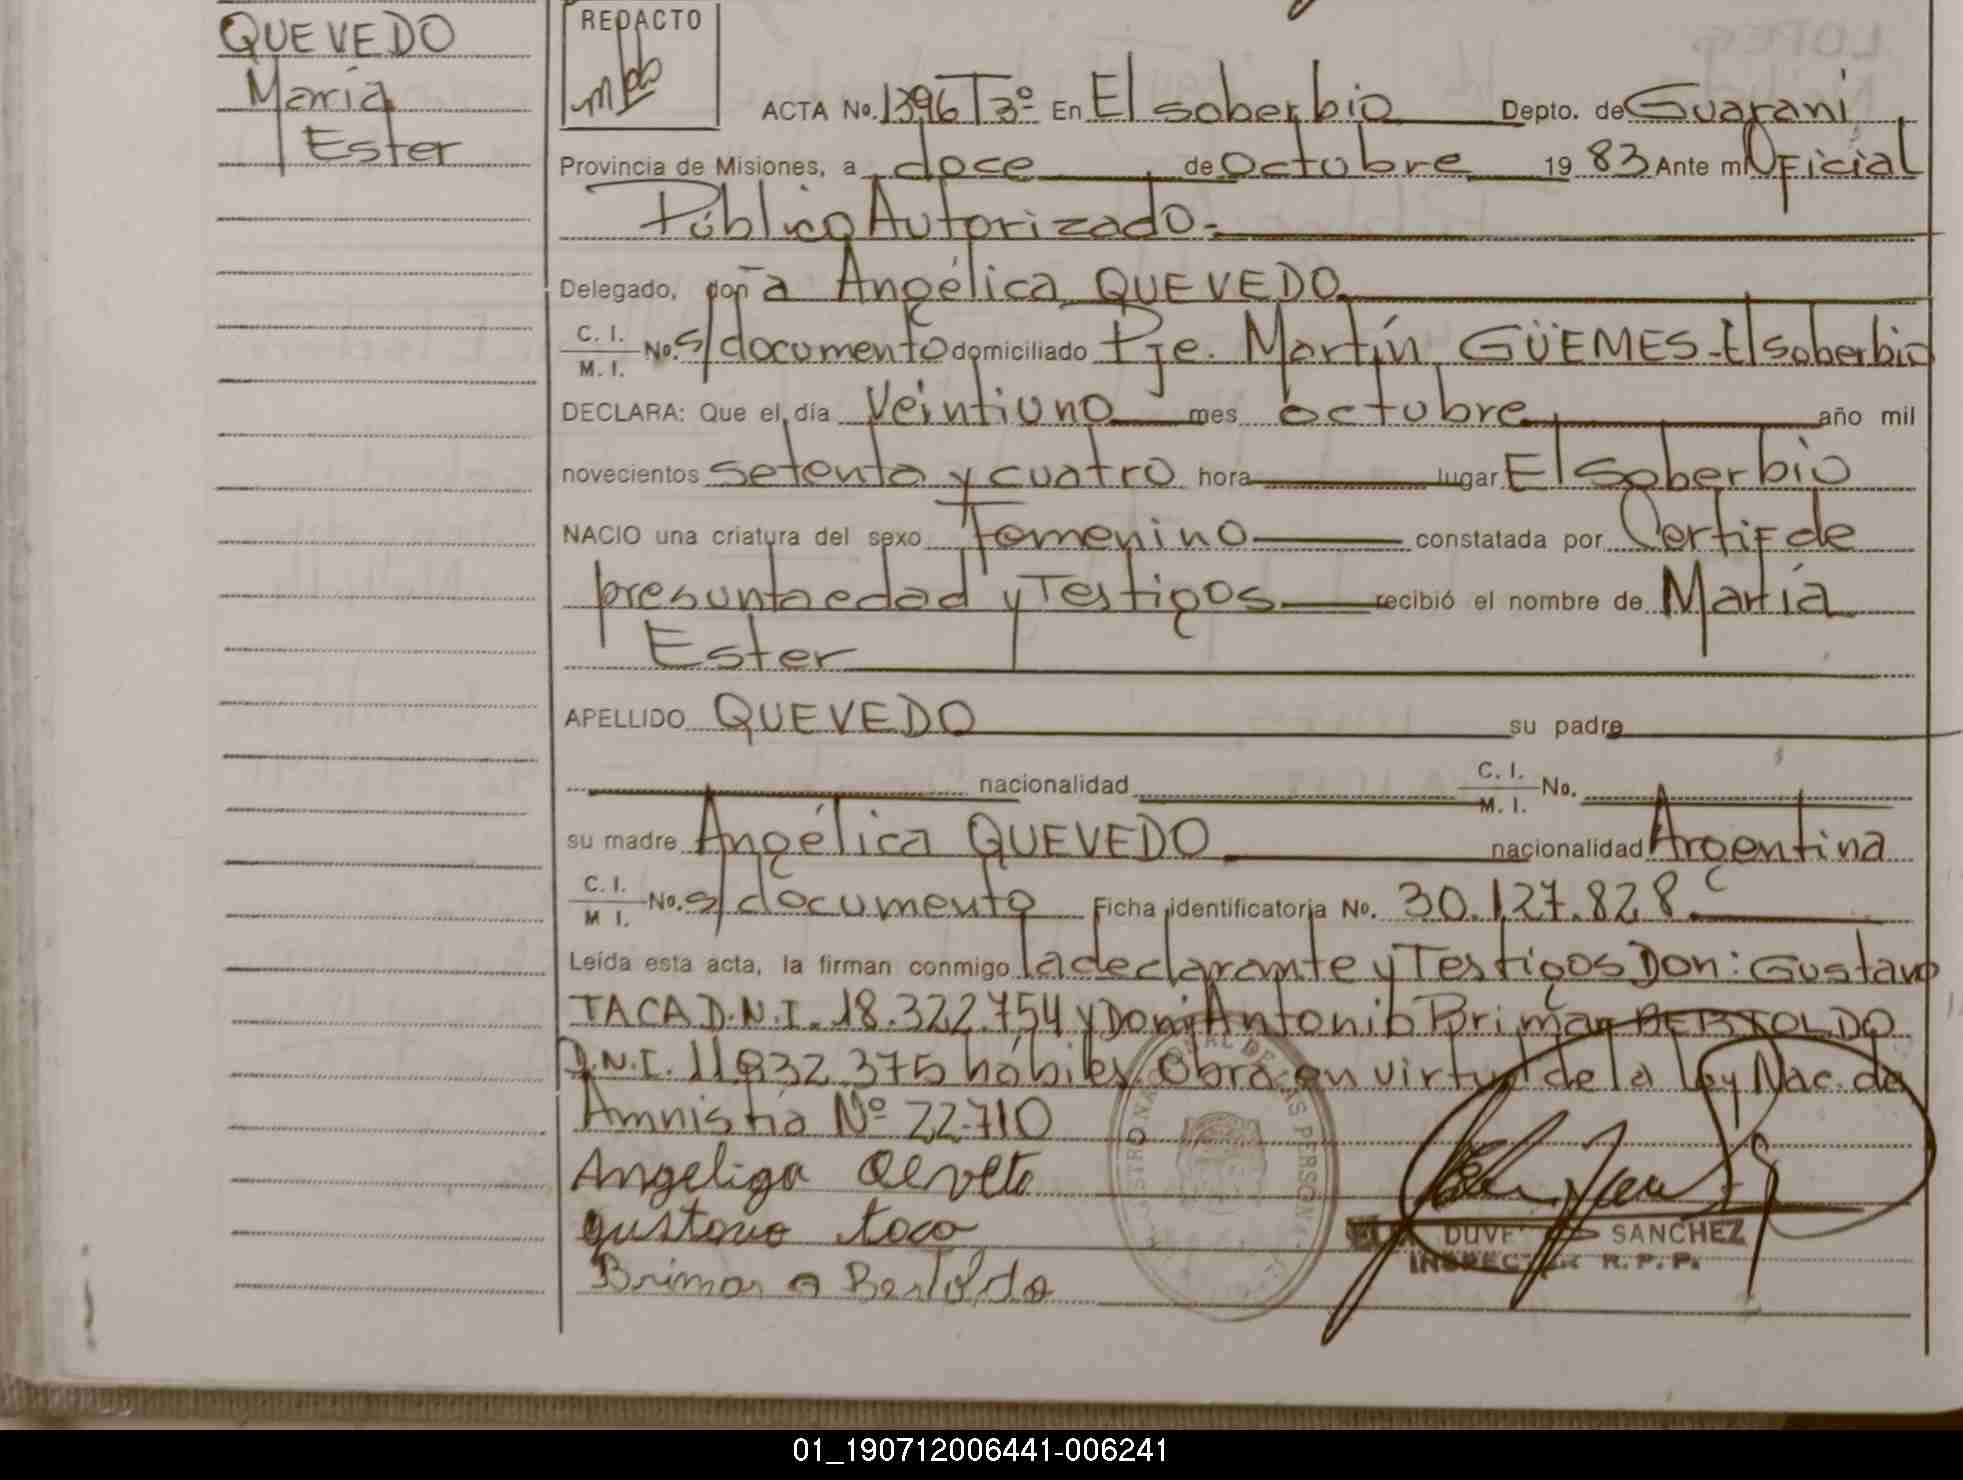 QUEVEDO
María
Ester
REDACTO
ACTA No. 1396 T3º En El soberbio Depto. de Guaraní
Provincia de Misiones, a doce de octubre 19 83 Ante mi Oficial
Público Autorizado.-
Delegado, don a Angélica QUEVEDO
C. I.
M. I. No. s/documento domiciliado Pje. Martín GÜEMES-El soberbio
DECLARA: Que el día veintiuno mes octubre año mil
novecientos setenta y cuatro hora lugar El soberbio
NACIO una criatura del sexo Femenino constatada por Certif de
presunta edad y Testigos recibió el nombre de María
Ester
APELLIDO QUEVEDO su padre
nacionalidad C. I.
M. I. No.
su madre Angélica QUEVEDO nacionalidad Argentina
C. I.
M I. No. s/documento Ficha identificatoria No. 30.127.828
Leída esta acta, la firman conmigo la declarante y Testigos Don: Gustavo
TACA D.N.I. 18.322.754 y Don: Antonio Brimar BERTOLDO
D.N.I. 11832.375 hábiles. Obra en virtud de la ley Nac. de
Amnistía Nº 22.710
Angeliga
gustavo taca
Brimar a Bertoldo
SANCHEZ
INSPECTOR R. P. P.
01_190712006441-006241